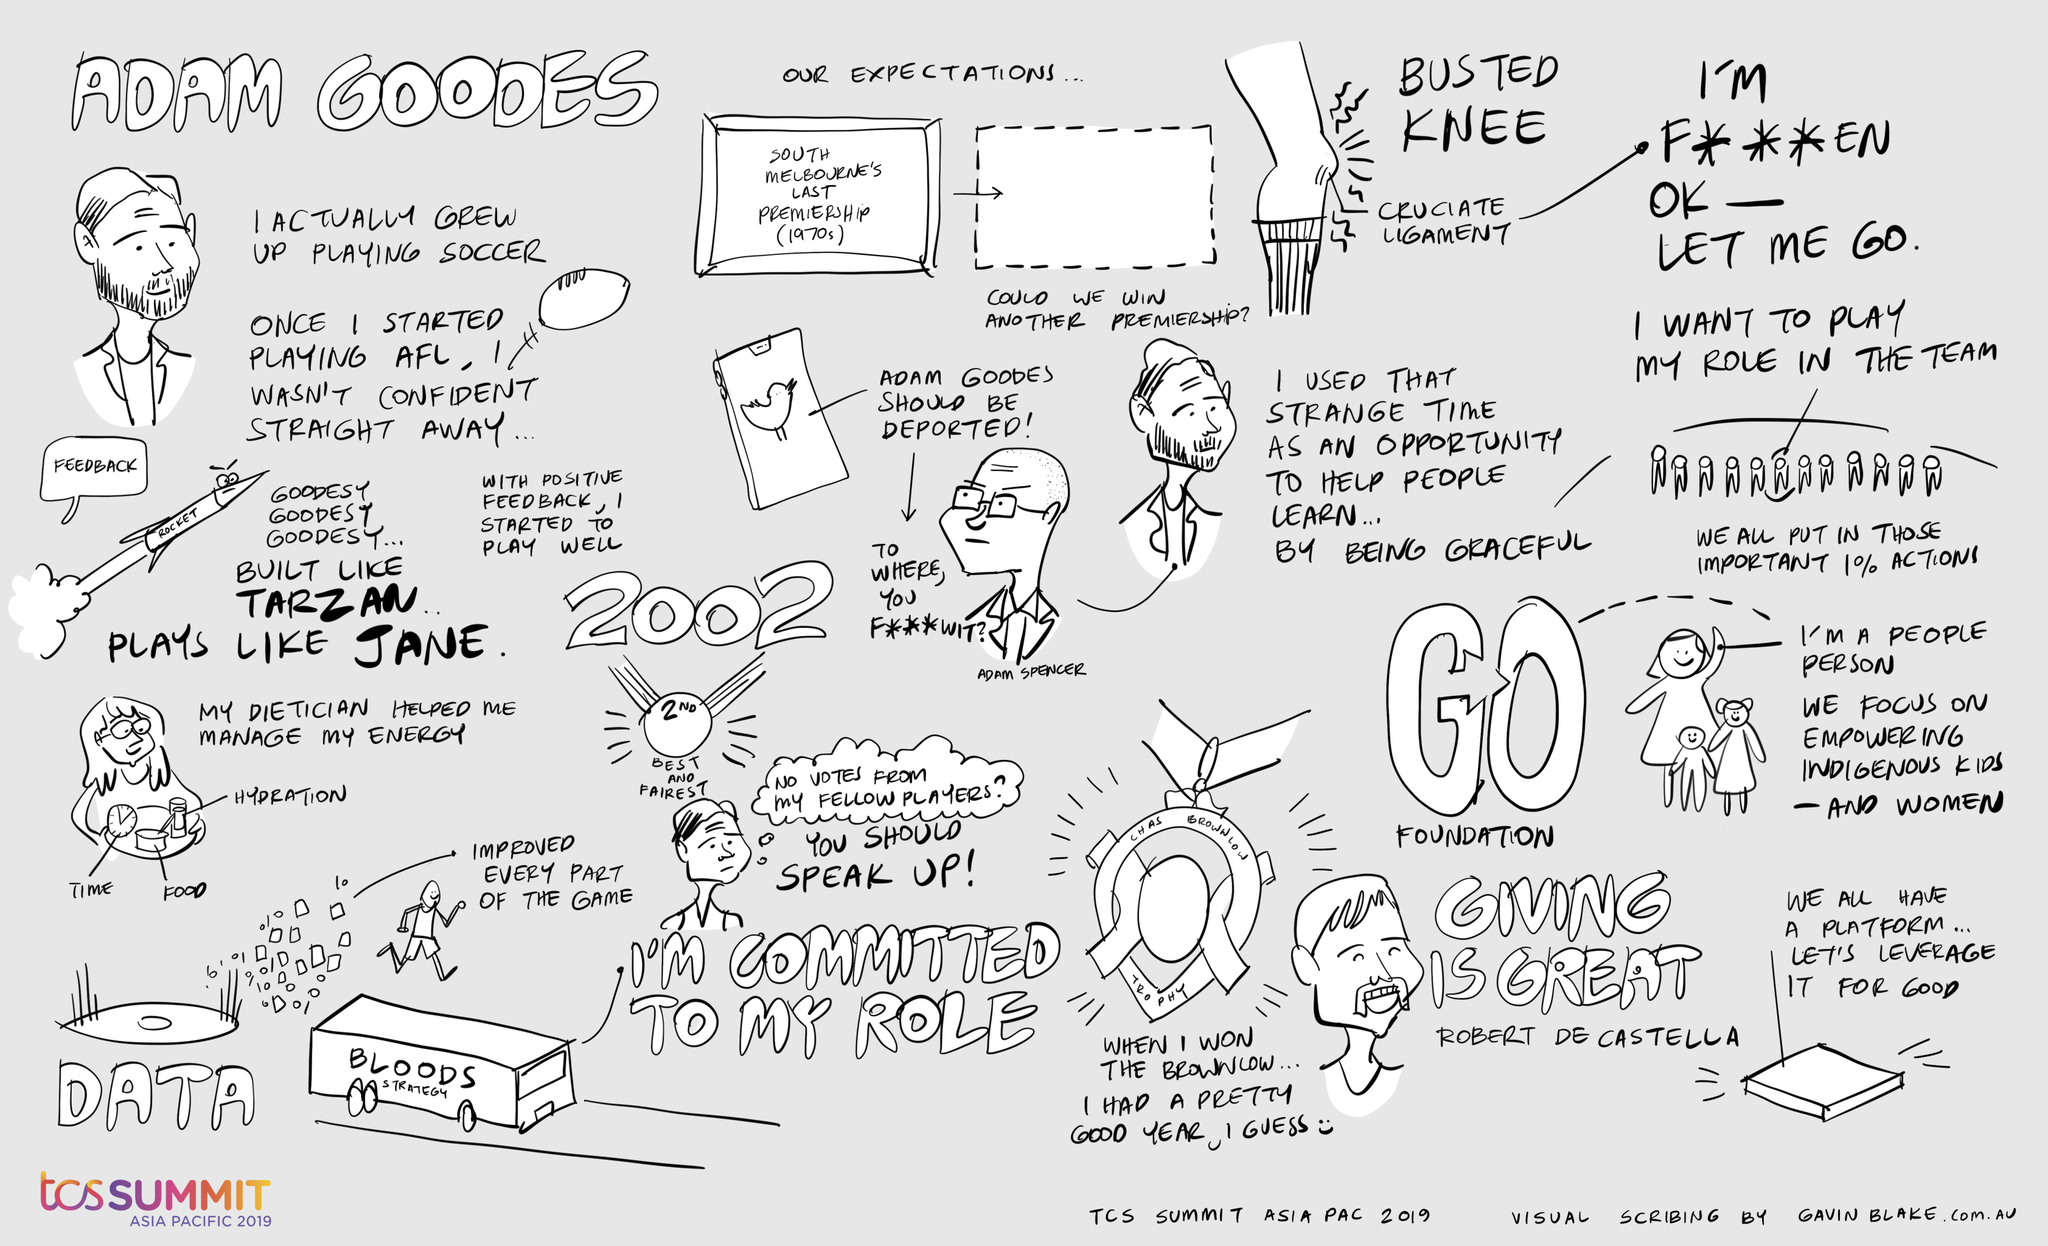 ADAM GOODES
I ACTUALLY GREW
UP PLAYING SOCCER
ONCE I STARTED
PLAYING AFL, I
WASN'T CONFIDENT
STRAIGHT AWAY...
FEEDBACK
ROCKET
GOODESY
GOODESY
GOODESY...
BUILT LIKE
TARZAN..
PLAYS LIKE JANE.
WITH POSITIVE
FEEDBACK, I
STARTED TO
PLAY WELL
MY DIETICIAN HELPED ME
MANAGE MY ENERGY
HYDRATION
TIME
FOOD
IMPROVED
EVERY PART
OF THE GAME
DATA
BLOODS
STRATEGY
OUR EXPECTATIONS...
SOUTH
MELBOURNE'S
LAST
PREMIERSHIP
(1970s)
COULD WE WIN
ANOTHER PREMIERSHIP?
ADAM GOODES
SHOULD BE
DEPORTED!
TO
WHERE,
YOU
F***WIT?
ADAM SPENCER
2002
2ND
BEST
AND
FAIREST
NO VOTES FROM
MY FELLOW PLAYERS?
YOU SHOULD
SPEAK UP!
I'M COMMITTED
TO MY ROLE
BUSTED
KNEE
CRUCIATE
LIGAMENT
I'M
F***EN
OK —
LET ME GO.
I USED THAT
STRANGE TIME
AS AN OPPORTUNITY
TO HELP PEOPLE
LEARN...
BY BEING GRACEFUL
I WANT TO PLAY
MY ROLE IN THE TEAM
WE ALL PUT IN THOSE
IMPORTANT 1% ACTIONS
CHAS BROWNLOW
TROPHY
WHEN I WON
THE BROWNLOW...
I HAD A PRETTY
GOOD YEAR, I GUESS
GO
FOUNDATION
I'M A PEOPLE
PERSON
WE FOCUS ON
EMPOWERING
INDIGENOUS KIDS
— AND WOMEN
GIVING
IS GREAT
ROBERT DE CASTELLA
WE ALL HAVE
A PLATFORM...
LET'S LEVERAGE
IT FOR GOOD
tcs SUMMIT
ASIA PACIFIC 2019
TCS SUMMIT ASIA PAC 2019
VISUAL SCRIBING BY GAVIN BLAKE.COM.AU